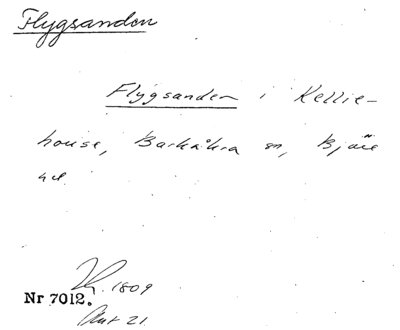 Flygsanden
Flygsanden i Kellie-
house, Barkåkra sn, Bjäre
hd.
1809
Nr 7012.
Akt 21.